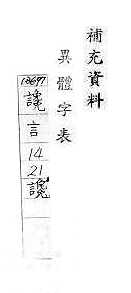 補充資料
異體字表
18697
讒
言
14
21
讒